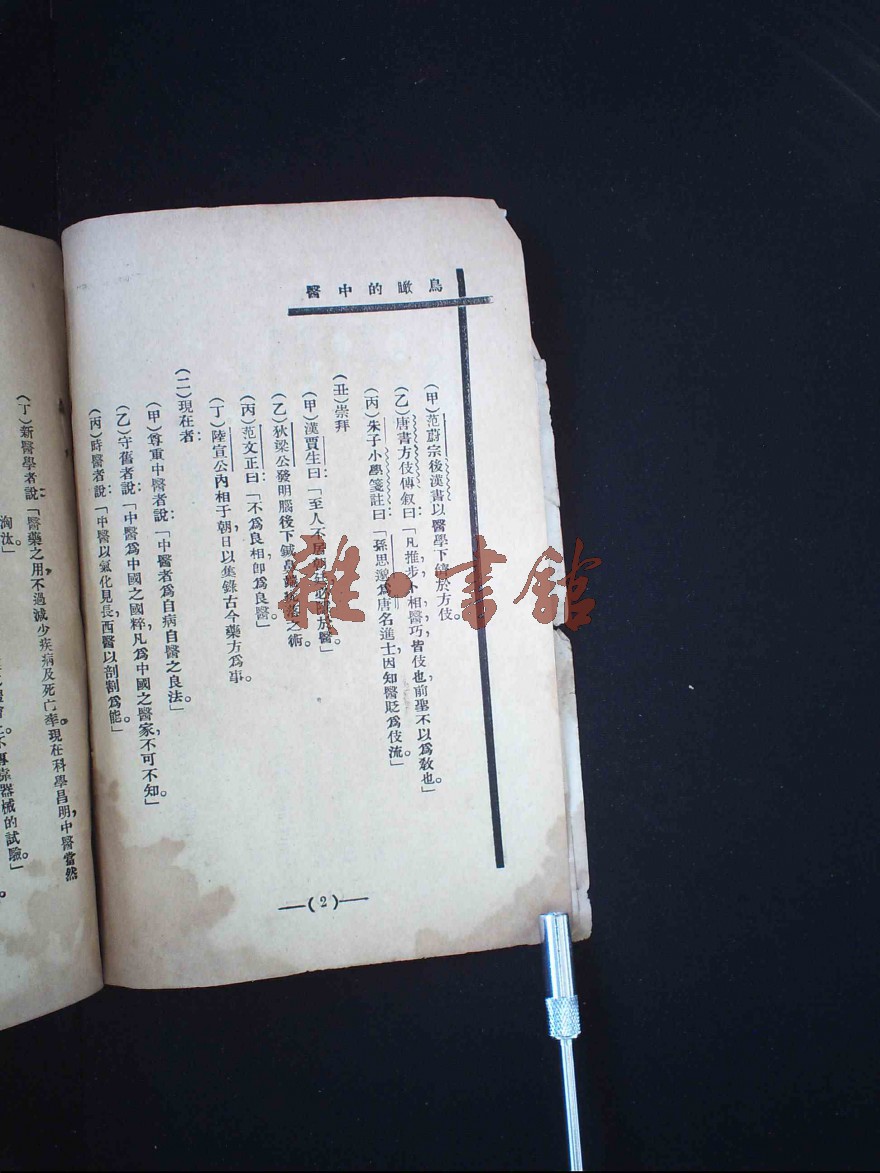 醫中的瞰鳥
（甲）范蔚宗後漢書以醫學下儕於方伎。
（乙）唐書方伎傳叙曰「凡推步卜相醫巧皆伎也，前聖不以爲敎也。」
（丙）朱子小學箋註曰「孫思邈爲唐名進士，因知醫貶爲伎流。」
（丑）崇拜
（甲）漢賈生曰：「至人不居朝廷必隱於醫」。
（乙）狄梁公發明腦後下鍼鼻端疣落之術。
（丙）范文正曰：「不爲良相卽爲良醫」。
（丁）陸宣公內相于朝，日以集錄古今藥方爲事。
（二）現在者：
（甲）尊重中醫者說：「中醫者爲自病自醫之良法」。
（乙）守舊者說：「中醫爲中國之國粹，凡爲中國之醫家，不可不知」
（丙）時醫者說：「中醫以氣化見長，西醫以剖割爲能」。
—(2)—
（丁）新醫學者說：「醫藥之用，不過減少疾病及死亡率。現在科學昌明，中醫當然
淘汰」
不專靠器械的試驗。」
雜·書館